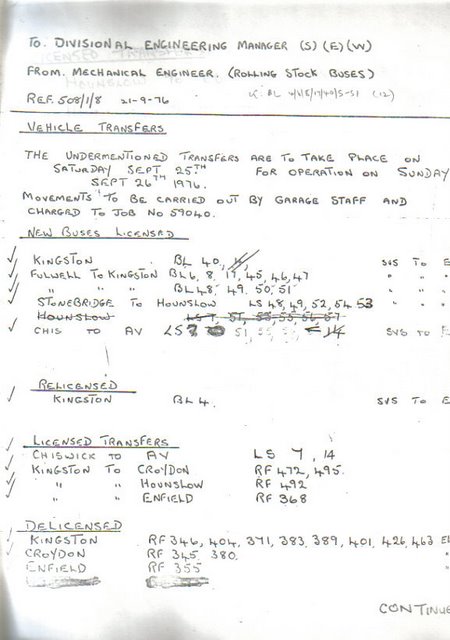 TO. DIVISIONAL ENGINEERING MANAGER (S) (E) (W)
FROM. MECHANICAL ENGINEER. (ROLLING STOCK BUSES)
REF. 508/1/8 21-9-76
VEHICLE TRANSFERS
THE UNDERMENTIONED TRANSFERS ARE TO TAKE PLACE ON
SATURDAY SEPT 25TH FOR OPERATION ON SUNDAY
SEPT 26TH 1976.
MOVEMENTS TO BE CARRIED OUT BY GARAGE STAFF AND
CHARGED TO JOB NO 59040.
NEW BUSES LICENSED
KINGSTON BL 40, SVS TO E
FULWELL TO KINGSTON BL 6, 8, 17, 45, 46, 47 " "
" " " BL 48, 49, 50, 51 " "
STONEBRIDGE TO HOUNSLOW LS 48, 49, 52, 54 53 " "
HOUNSLOW LS 7, 51, 53, 55, 56, 57
CHIS TO AV LS 7 51, 55 14 SVS TO E
RELICENSED
KINGSTON BL 4. SVS TO E
LICENSED TRANSFERS
CHISWICK TO AV LS 7, 14
KINGSTON TO CROYDON RF 472, 495.
" " HOUNSLOW RF 492
" " ENFIELD RF 368
DELICENSED
KINGSTON RF 346, 404, 371, 383, 389, 401, 426, 463 E
CROYDON RF 345, 380. "
ENFIELD RF 355 "
CONTINUE